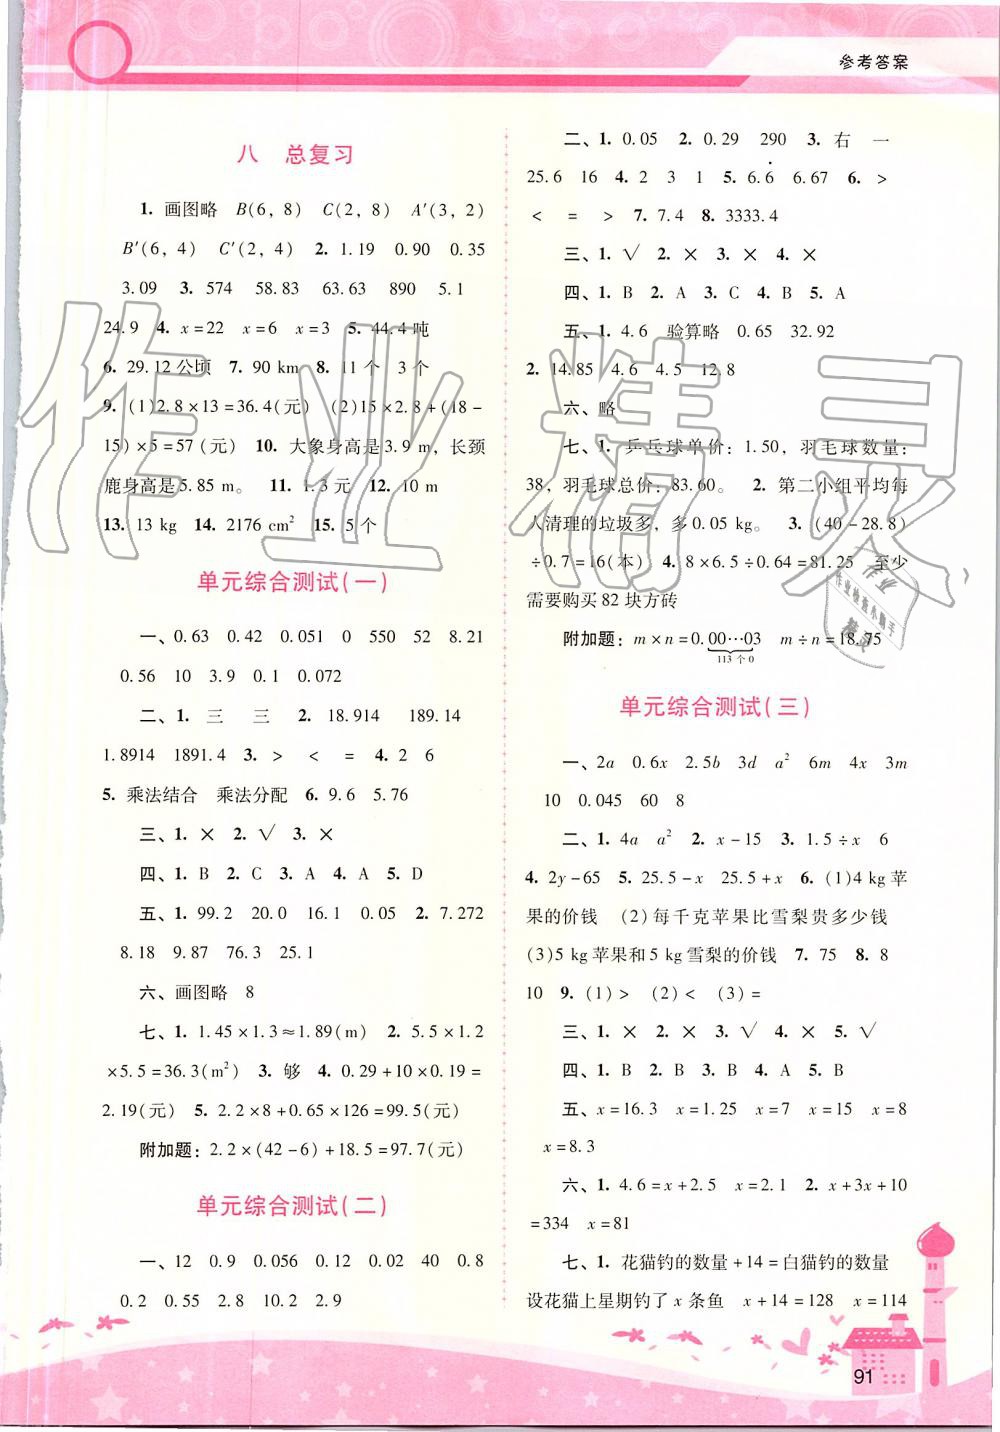 参考答案
八　总复习
1. 画图略　B(6, 8)　C(2, 8)　A′(3, 2)
B′(6, 4)　C′(2, 4)　2. 1.19　0.90　0.35
3.09　3. 574　58.83　63.63　890　5.1
24.9　4. x=22　x=6　x=3　5. 44.4吨
6. 29.12公顷　7. 90 km　8. 11个　3个
9. (1)2.8×13=36.4(元)　(2)15×2.8+(18-
15)×5=57(元)　10. 大象身高是3.9 m，长颈
鹿身高是5.85 m。　11. 1.3元　12. 10 m
13. 13 kg　14. 2176 cm²　15. 5个
单元综合测试(一)
一、0.63　0.42　0.051　0　550　52　8.21
0.56　10　3.9　0.1　0.072
二、1. 三　三　2. 18.914　189.14
1.8914　1891.4　3. ＞　＜　=　4. 2　6
5. 乘法结合　乘法分配　6. 9.6　5.76
三、1. ×　2. √　3. ×
四、1. B　2. C　3. A　4. A　5. D
五、1. 99.2　20.0　16.1　0.05　2. 7.272
8.18　9.87　76.3　25.1
六、画图略　8
七、1. 1.45×1.3≈1.89(m)　2. 5.5×1.2
×5.5=36.3(m²)　3. 够　4. 0.29+10×0.19=
2.19(元)　5. 2.2×8+0.65×126=99.5(元)
附加题：2.2×(42-6)+18.5=97.7(元)
单元综合测试(二)
一、12　0.9　0.056　0.12　0.02　40　0.8
0.2　0.55　2.8　10.2　2.9
二、1. 0.05　2. 0.29　290　3. 右　一
25.6　16　4. 2　3　1　5. 6.6̇　6.67　6. ＞
＜　=　＞　7. 7.4　8. 3333.4
三、1. √　2. ×　3. ×　4. ×
四、1. B　2. A　3. C　4. B　5. A
五、1. 4.6　验算略　0.65　32.92
2. 14.85　4.6　4.5　12.8
六、略
七、1. 乒乓球单价：1.50，羽毛球数量：
38，羽毛球总价：83.60。　2. 第二小组平均每
人清理的垃圾多，多0.05 kg。　3. (40-28.8)
÷0.7=16(本)　4. 8×6.5÷0.64=81.25　至少
需要购买82块方砖
附加题：m×n=0.00…03　m÷n=18.75
113个0
单元综合测试(三)
一、2a　0.6x　2.5b　3d　a²　6m　4x　3m
10　0.045　60　8
二、1. 4a　a²　2. x-15　3. 1.5÷x　6
4. 2y-65　5. 25.5-x　25.5+x　6. (1)4 kg苹
果的价钱　(2)每千克苹果比雪梨贵多少钱
(3)5 kg苹果和5 kg雪梨的价钱　7. 75　8. 8
10　9. (1)＞　(2)＜　(3)=
三、1. ×　2. ×　3. √　4. ×　5. √
四、1. B　2. B　3. B　4. A　5. B
五、x=16.3　x=1.25　x=7　x=15　x=8
x=8.3
六、1. 4.6=x+2.5　x=2.1　2. x+3x+10
=334　x=81
七、1. 花猫钓的数量+14=白猫钓的数量
设花猫上星期钓了x条鱼　x+14=128　x=114
91
作业精灵
作业
作业检查小助手
精灵